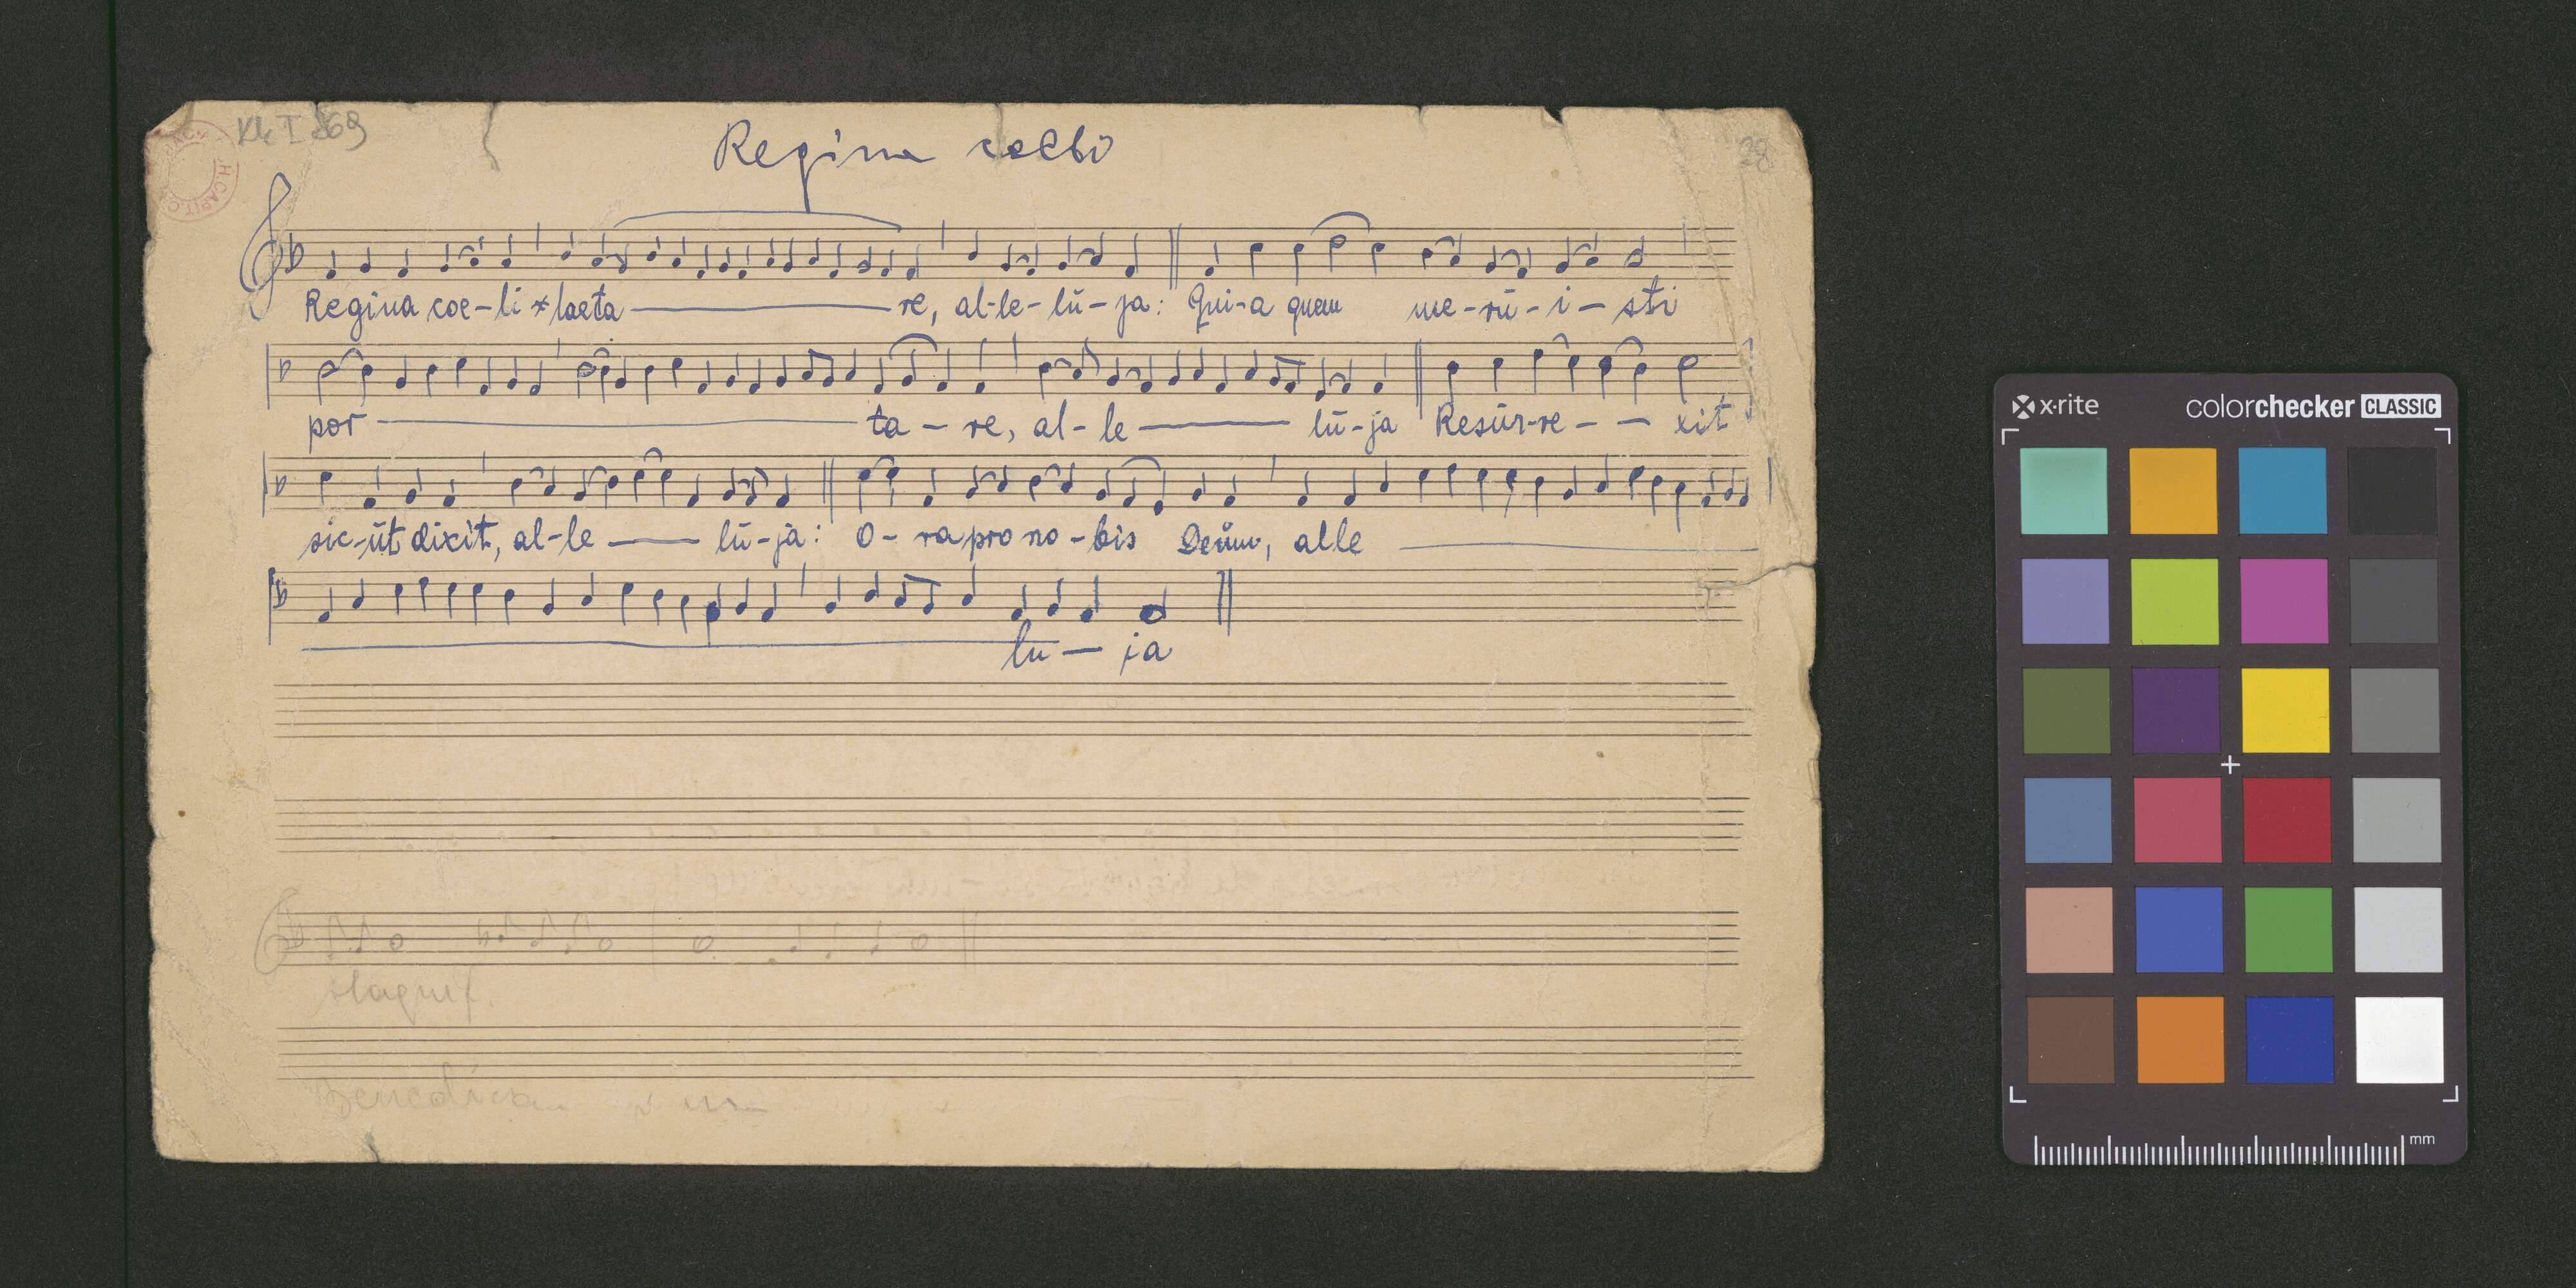 Kk I 869
28
H.CAPIT.C
Regina coeli
Regina coe-li × laeta — re, al-le-lū-ja: Qui-a quem me-rū-i-sti
por — ta-re, al-le — lū-ja Resūr-re- — xit
sic-ūt dixit, al-le — lū-ja: O-ra pro no-bis Deūm, alle —
— lu — ja
Magnif.
x·rite
colorchecker CLASSIC
mm